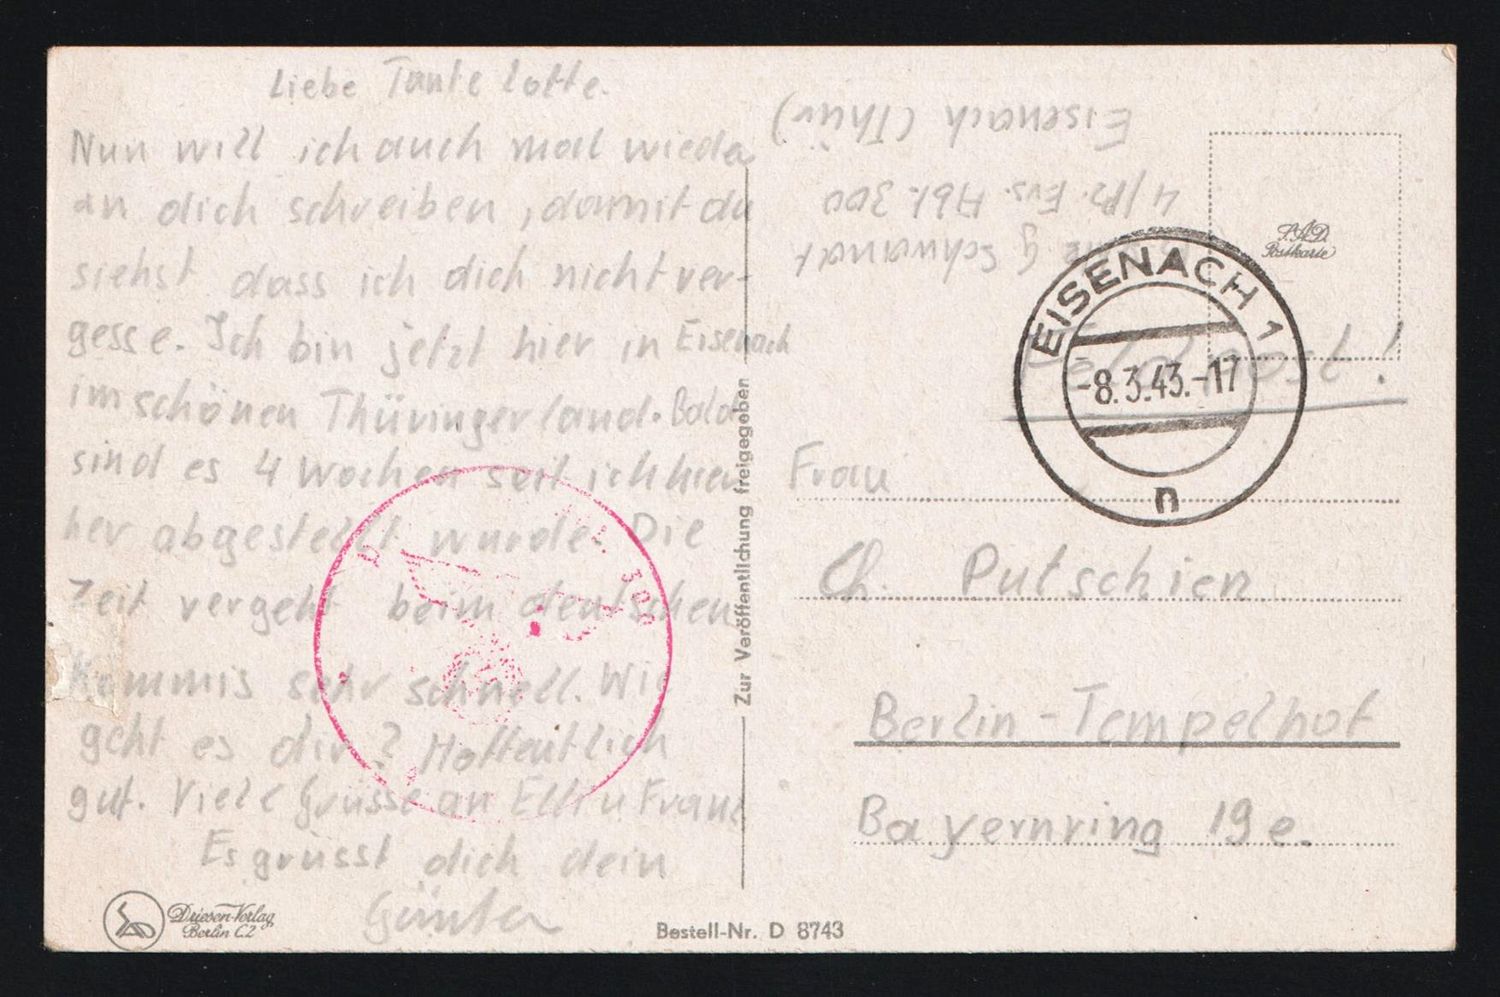 Liebe Tante Lotte.
Nun will ich auch mal wieder
an dich schreiben, damit du
siehst dass ich dich nicht ver-
gesse. Ich bin jetzt hier in Eisenach
im schönen Thüringerland. Bald
sind es 4 Wochen seit ich hier
her abgestellt wurde. Die
Zeit vergeht beim deutschen
Kommis sehr schnell. Wie
geht es dir? Hoffentlich
gut. Viele Grüsse an Elli u Franz
Es grüsst dich dein
Günter
Driesen-Verlag
Berlin C2
Bestell-Nr. D 8743
Zur Veröffentlichung freigegeben
G Schwandt
4/Pz. Ers. Abt. 300
Eisenach (Thür.)
P.A.D.
Postkarte
EISENACH 1
-8.3.43.-17
n
Feldpost!
Frau
Ch. Putschien
Berlin-Tempelhof
Bayernring 19e.
300